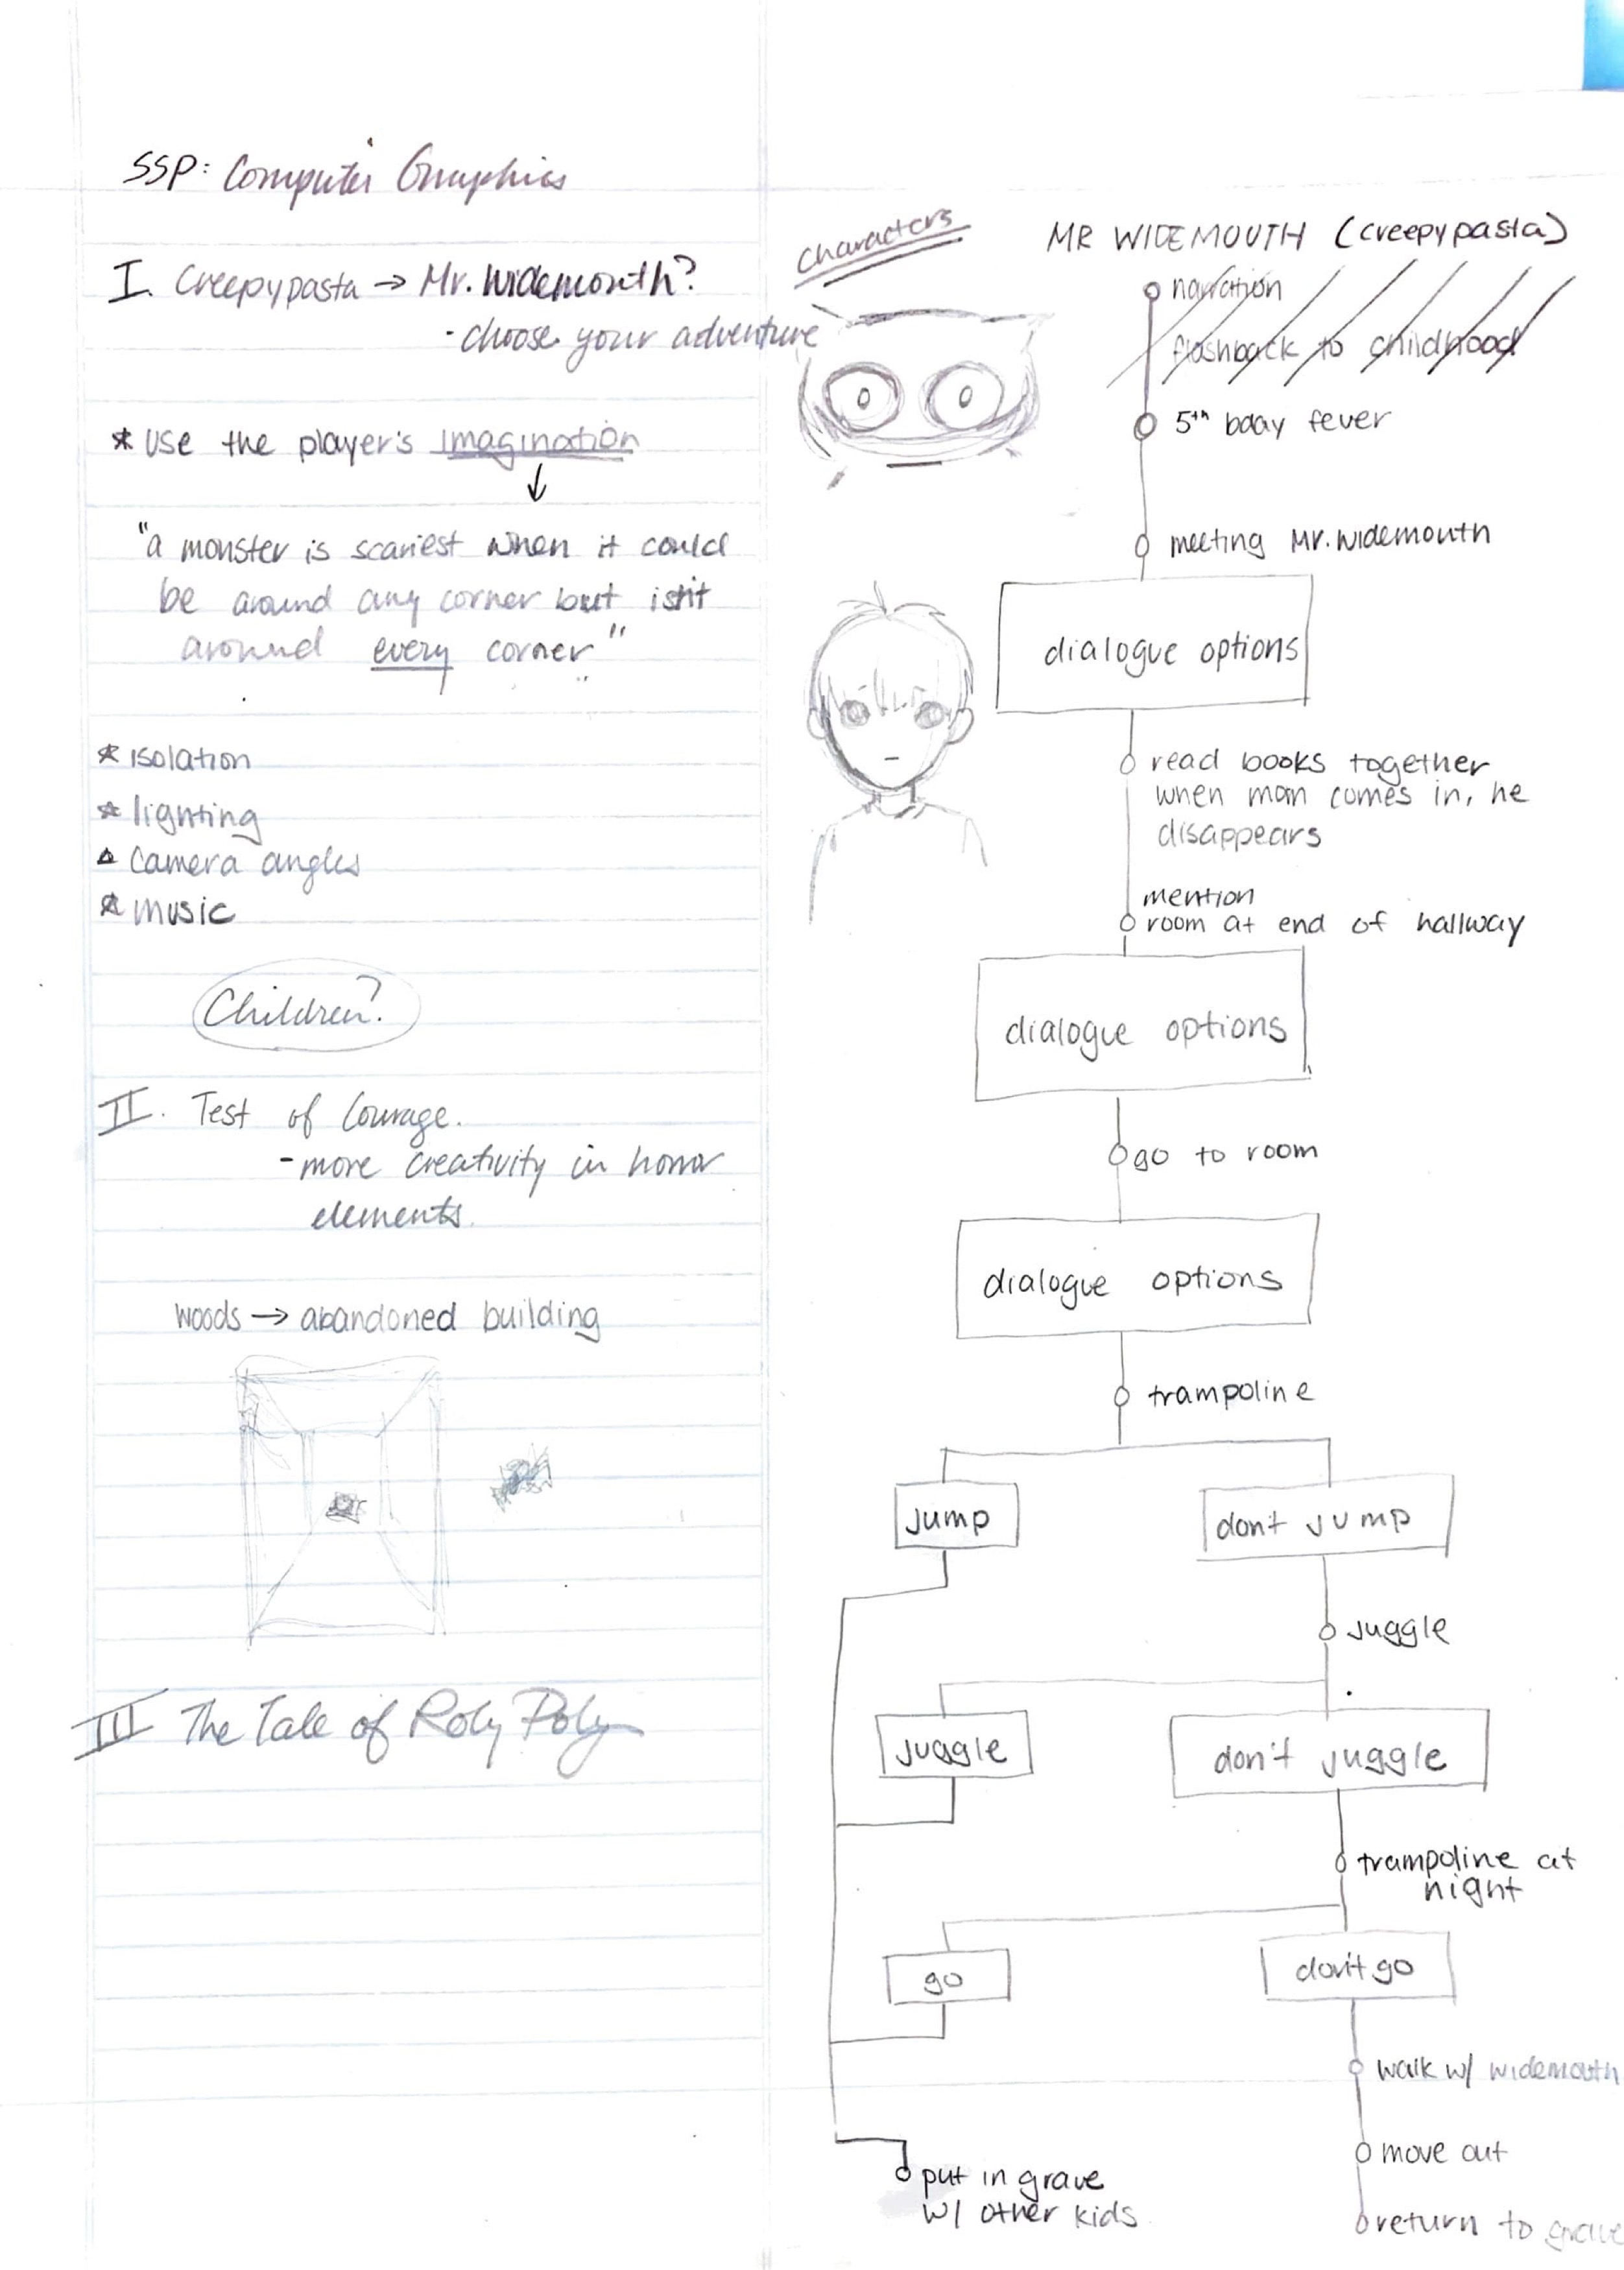 SSP: Computer Graphics
I. Creepypasta → Mr. Widemouth?
- choose your adventure
* use the player's imagination
↓
"a monster is scariest when it could
be around any corner but isn't
around every corner"
* isolation
* lighting
* camera angles
* music
Children?
II. Test of Courage.
- more creativity in horror
elements.
woods → abandoned building
III The Tale of Roly Poly
characters
MR WIDEMOUTH (creepypasta)
narration
flashback to childhood
5th bday fever
meeting Mr. Widemouth
dialogue options
read books together
when mom comes in, he
disappears
mention
room at end of hallway
dialogue options
go to room
dialogue options
trampoline
jump
don't jump
juggle
juggle
don't juggle
trampoline at
night
go
don't go
walk w/ widemouth
move out
put in grave
w/ other kids
return to grave